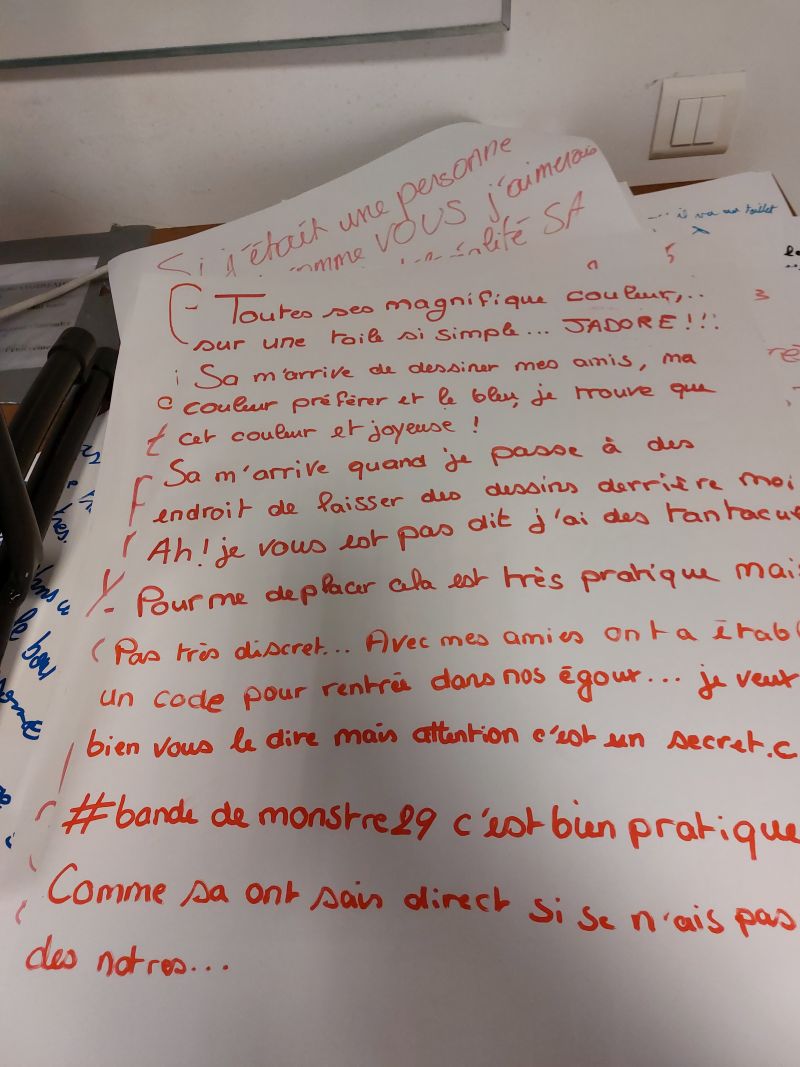 Si j'était une personne
comme VOUS j'aimerais
SA
il va au toilet
Toutes ses magnifique couleur,..
sur une toile si simple... JADORE!!!
Sa m'arrive de dessiner mes amis, ma
couleur préférer et le bleu, je trouve que
cet couleur et joyeuse !
Sa m'arrive quand je passe à des
endroit de laisser des dessins derrière moi
Ah! je vous est pas dit j'ai des tantacu
Pour me deplacer cela est très pratique mais
Pas très discret... Avec mes amies ont a établ
un code pour rentrée dans nos égout... je veut
bien vous le dire mais attention c'est un secret.c
#bande de monstre29 c'est bien pratique
Comme sa ont sais direct si se n'ais pas
des notres...